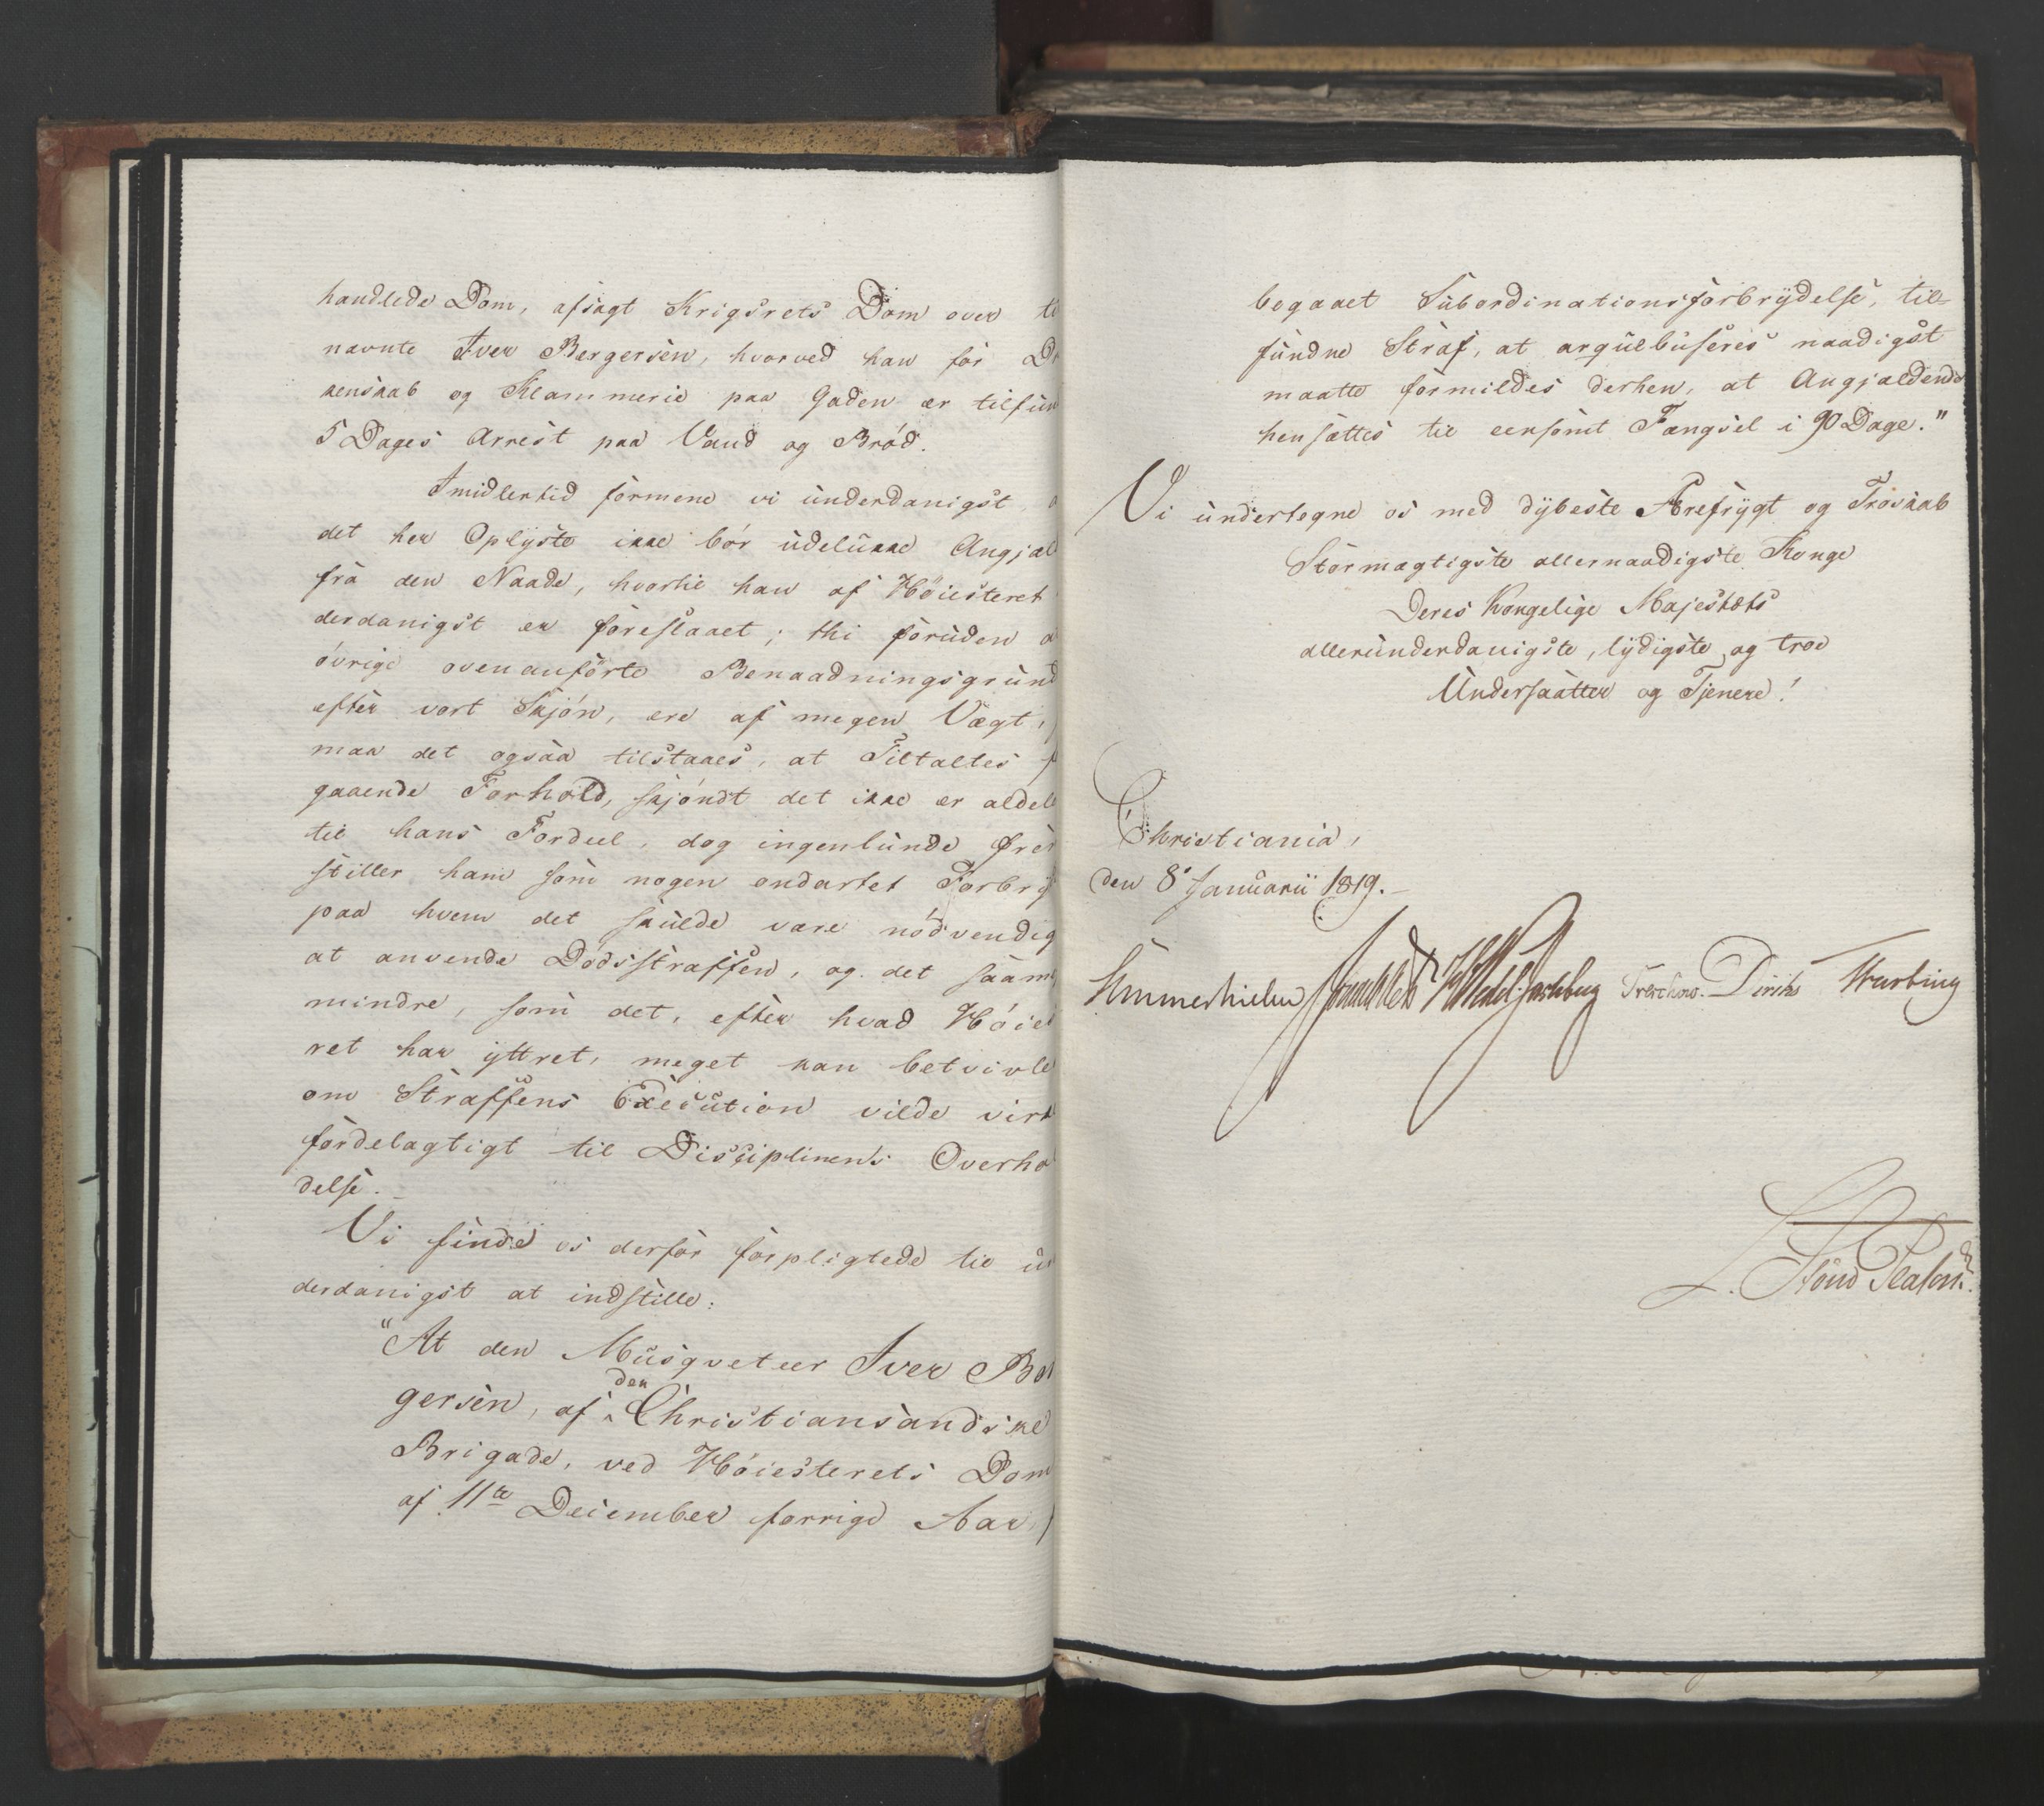 handlede Dom, afsagt Krigsrets Dom over
nævnte Iver Bergersen, hvorved han for
kenskab og Klammerie paa Gaden er tilfun
5 Dages Arrest paa Vand og Brød.
Imidlertid formene vi underdanigst,
det her Oplyste ikke bør udelukke Angjæl
fra den Naade, hvortil han af Høiesteret
derdanigst er foreslaaet; thi foruden
øvrige ovenanførte Benaadningsgrund
efter vort Skjøn, ere af megen Vægt,
maa det ogsaa tilstaaes, at Tiltaltes
gaaende Forhold, skjøndt det ikke er aldel
til hans Fordeel, dog ingenlunde frem
stiller ham som nogen ondartet Forbry
paa hvem det skulde være nødvendig
at anvende Dødsstraffen, og det saam
mindre, som det, efter hvad Høies
ret har yttret, meget kan betvivle
om Straffens Execution vilde virk
fordelagtigt til Disciplinens Overhol
delse.
Vi finde os derfor forpligtede til un
derdanigst at indstille:
"At den Musqveteer Iver Ber
gersen, af den Christiansandske
Brigade, ved Høiesterets Dom
af 11te December forrige Aar,
begaaet Subordinationsforbrydelse, til-
fundne Straf, at arqvibuseres naadigst
maatte formildes derhen, at Angjældende
hensættes til eensomt Fængsel i 90 Dage."
Vi undertegne os med dybeste Ærefrygt og Troskab
Stormægtigste allernaadigste Konge
Deres Kongelige Majestæts
allerunderdanigste, lydigste og troe
Undersaatter og Tjenere!
Christiania,
den 8de Januarii 1819.
Sommerhielm Wedel-Jarlsberg Treschow. Diriks